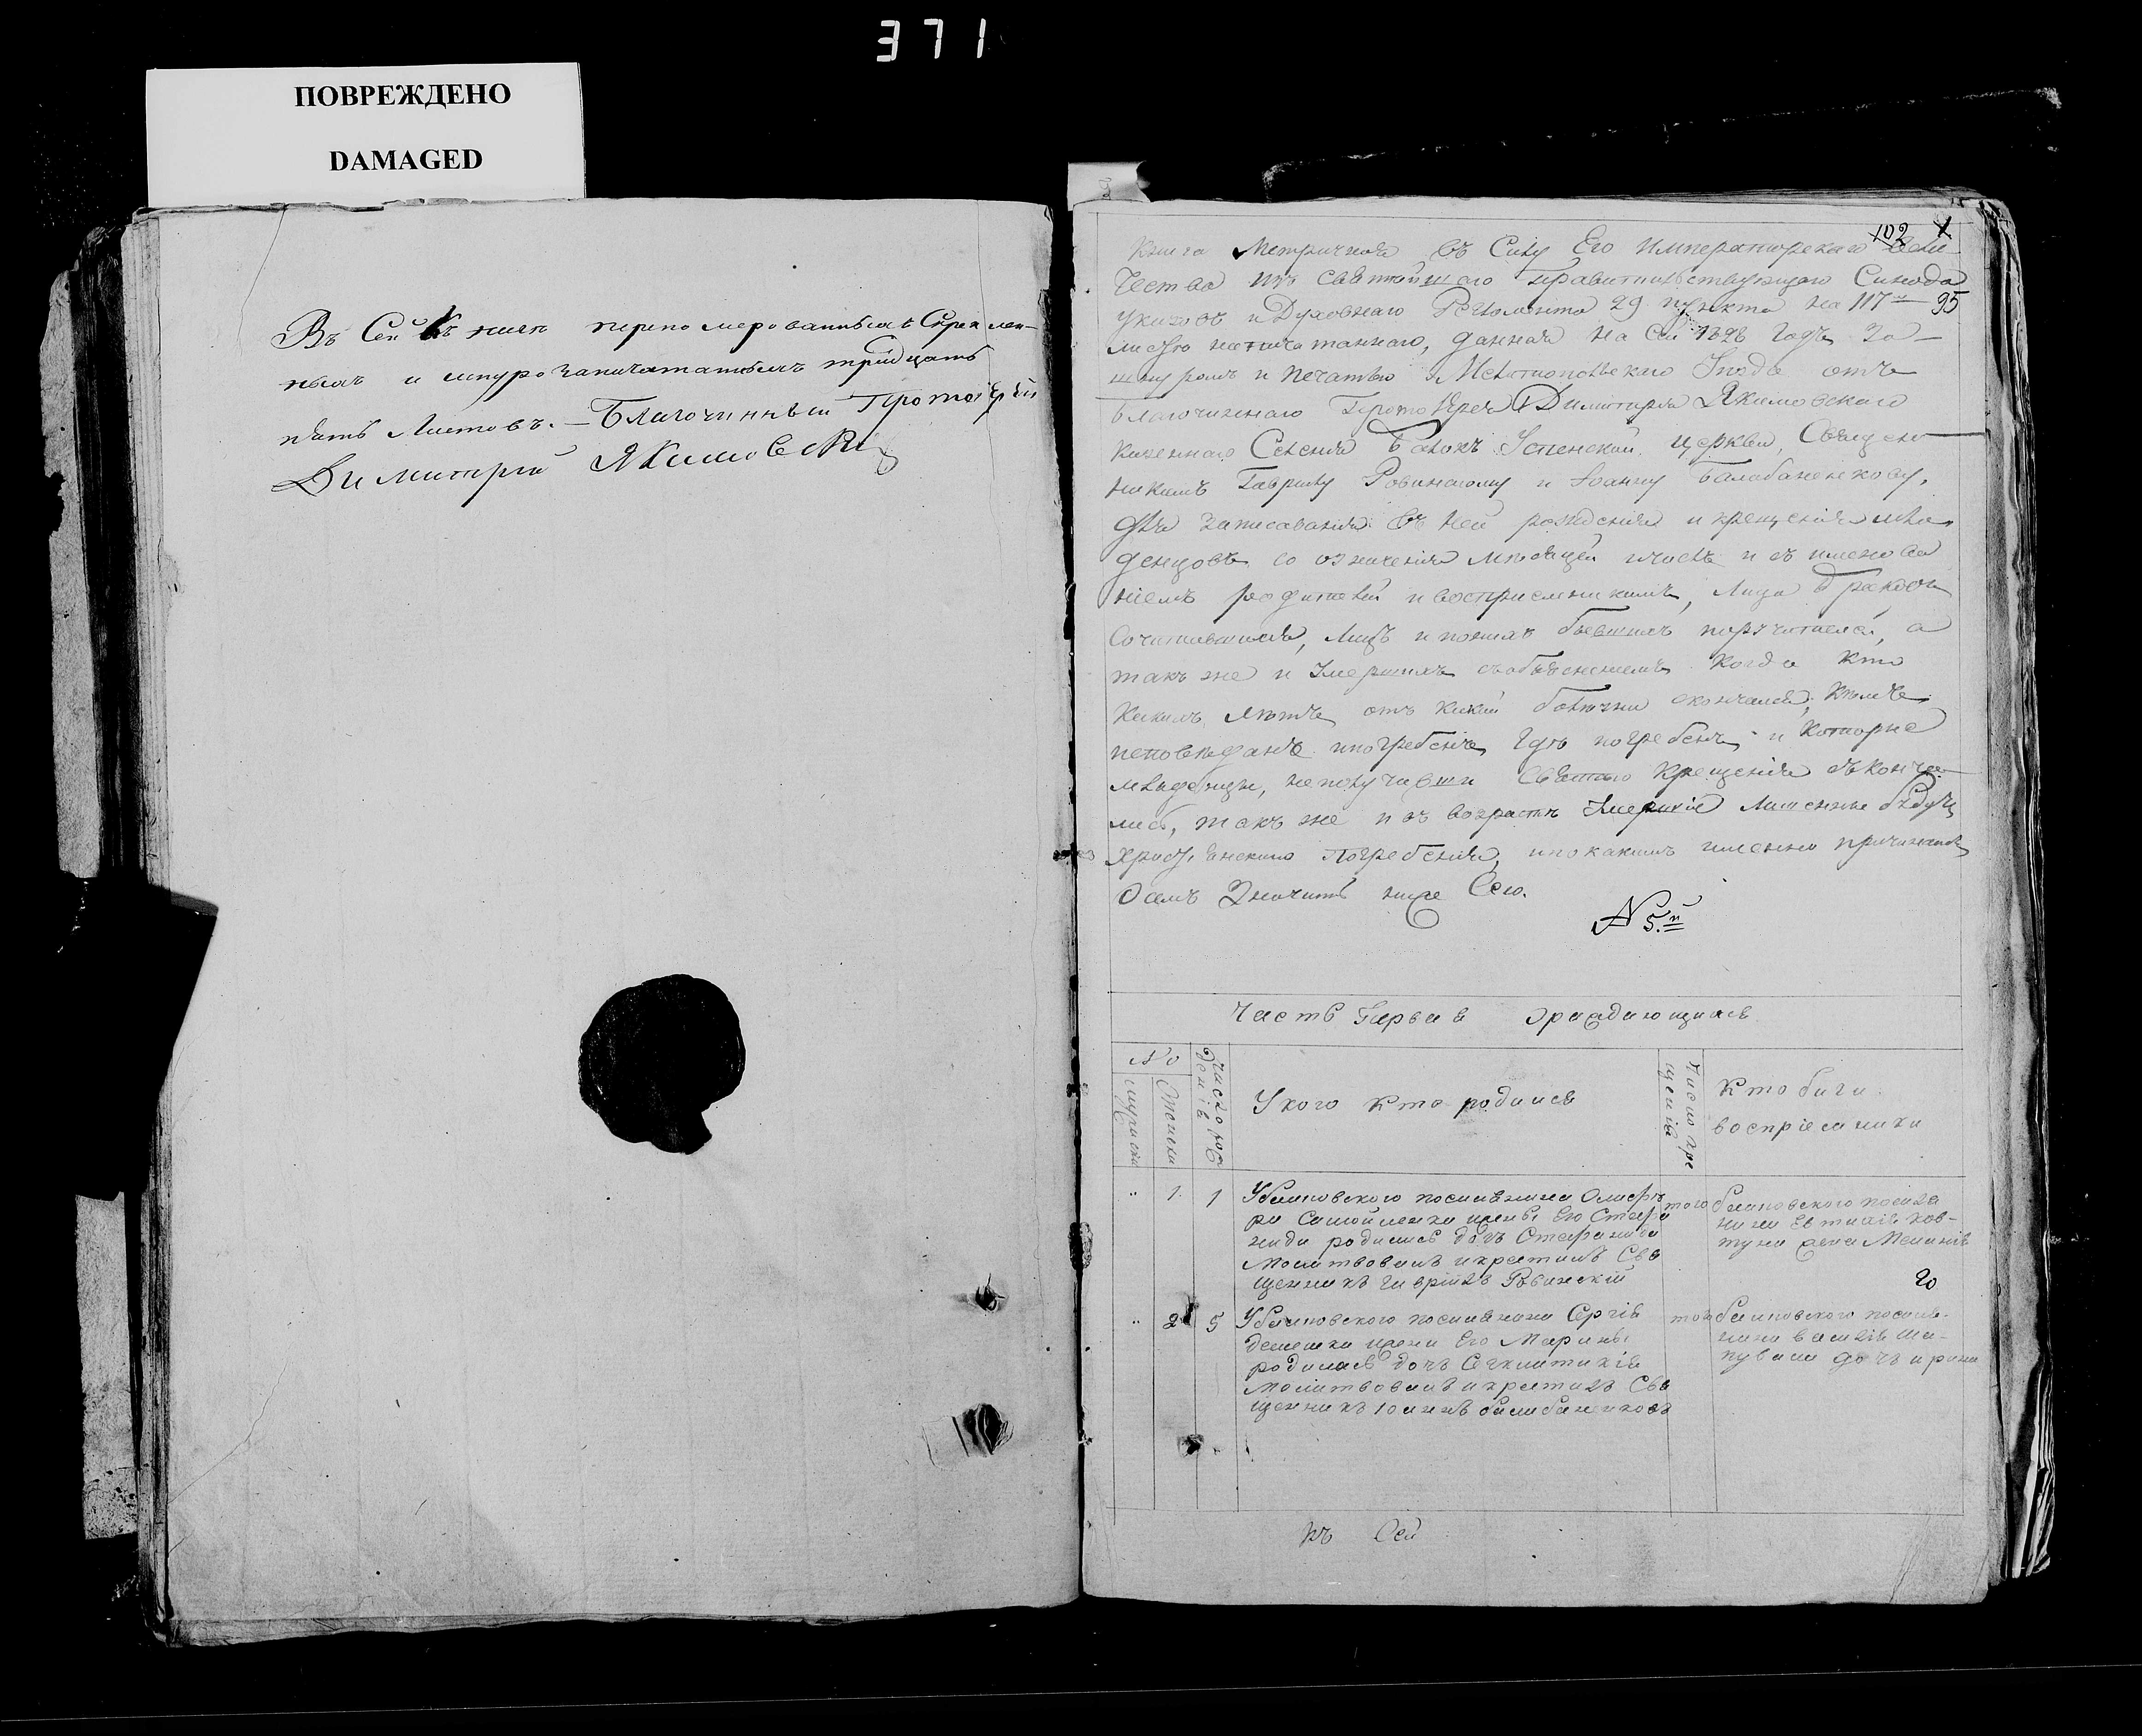 371
ПОВРЕЖДЕНО
DAMAGED
Въ Сей Книгѣ перенумерованныхъ Скреплен-
ныхъ и шнурозапечатанныхъ тридцать
пять Листовъ. – Благочинный Протоіерей
Димитрій Якимовскій
102 1
95
Книга Метричная въ Силу Его Императорскаго Вели
чества изъ Святѣйшаго Правительствующаго Синода
указовъ и Духовнаго Регламента 29 пункта на 117
листѣ напечатаннаго, данная на сей 1828 годъ за
шнуромъ и печатью Мелитопольскаго уезда отъ
Благочиннаго Протоіерея Димитрія Якимовскаго
казеннаго Селенія Балокъ Успенской церкви, Священ
никамъ Гаврилу Ровинскому и Іоанну Балабаненкову,
для записаванія въ ней рожденія и крещенія мла
денцовъ со означенія мѣсяцей числъ и съ именова
ніемъ родителей и воспріемниковъ, лица бракомъ
сочитавшися, лицъ и понихъ бывшихъ поручителей, а
такъ же и Умершихъ съ объясненіемъ когда кто
какихъ лѣтъ отъ какой болѣзни скончался, кѣмъ
исповѣданъ и погребенъ, гдѣ погребенъ и которые
младенцы, неполучивши Святаго Крещенія скончa
лись, такъ же и въ возрастѣ Умершіе лишенные будутъ
христіанскаго Погребенія, и по какимъ именно причинамъ
О семъ Значитъ ниже Сего.
№ 5.й
Часть Первая О раждающихся
№
мужеска
женска
Число рож
денія
У кого кто родился
Число кре
щенія
Кто били
воспріемники
" 1 1
У балковского поселянина
ра Самойленка жены Его Стефа
ниды родилась дочь Стефанида
Молитвовалъ и крестилъ Свя
щенникъ Гавріилъ Ровинскій
того
балковского поселя
нина Евтихія Ков-
туна жена Меланія
20
" 2 5
У балковского поселянина Сергія
жены Его Марины
родилась дочь Секлитикія
Молитвовалъ и крестилъ Свя
щенникъ Іоаннъ балабаненковъ
того
балковского поселя-
нина василія Ша-
повала дочь ирина
къ Сей